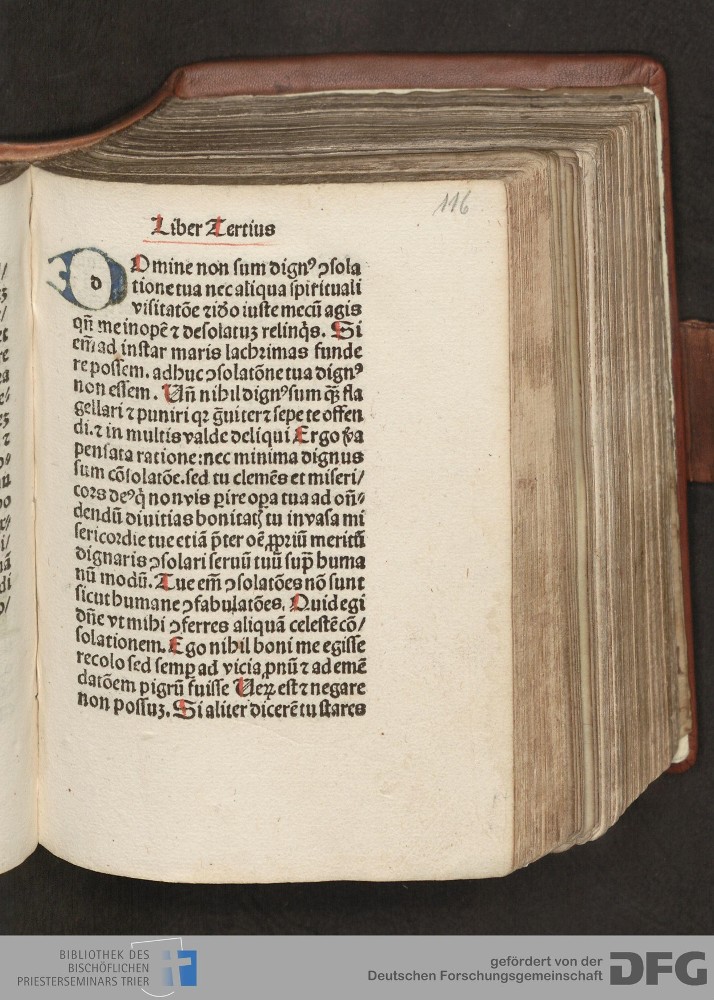 116
Liber Tertius
d
Omine non sum dignꝰ ꝯsola
tione tua nec aliqua spirituali
visitatōe ⁊ idō iuste mecū agis
qn̄ me inopē ⁊ desolatuꝫ relinq̇s. Si
em̄ ad instar maris lachrimas funde
re possem. adhuc ꝯsolatōne tua dignꝰ
non essem. Un̄ nihil dignꝰ sum qꝫ̄ fla
gellari ⁊ puniri qꝛ g̃uiter ⁊ sepe te offen
di. ⁊ in multis valde deliqui Ergo ꝟa
pensata ratione: nec minima dignus
sum cōsolatōe. sed tu clemēs et miseri/
cors deꝰ q̇ non vis ꝑire oꝑa tua ad on̄⸗
dendū diuitias bonitatꝭ tu in vasa mi
sericordie tue etiā p̄ter oē ꝓpriū meritū
dignaris ꝯsolari seruū tuū sup̄ huma
nū modū. Tue em̄ ꝯsolatōes nō sunt
sicut humane ꝯfabulatōes. Quid egi
dn̄e vt mihi ꝯferres aliquā celestē cō/
solationem. Ego nihil boni me egisse
recolo sed semꝑ ad vicia ꝓnū ⁊ ad emē
datōem pigrū fuisse Ueꝝ est ⁊ negare
non possuꝫ. Si aliter dicerē tu stares
BIBLIOTHEK DES
BISCHÖFLICHEN
PRIESTERSEMINARS TRIER
gefördert von der
Deutschen Forschungsgemeinschaft
DFG